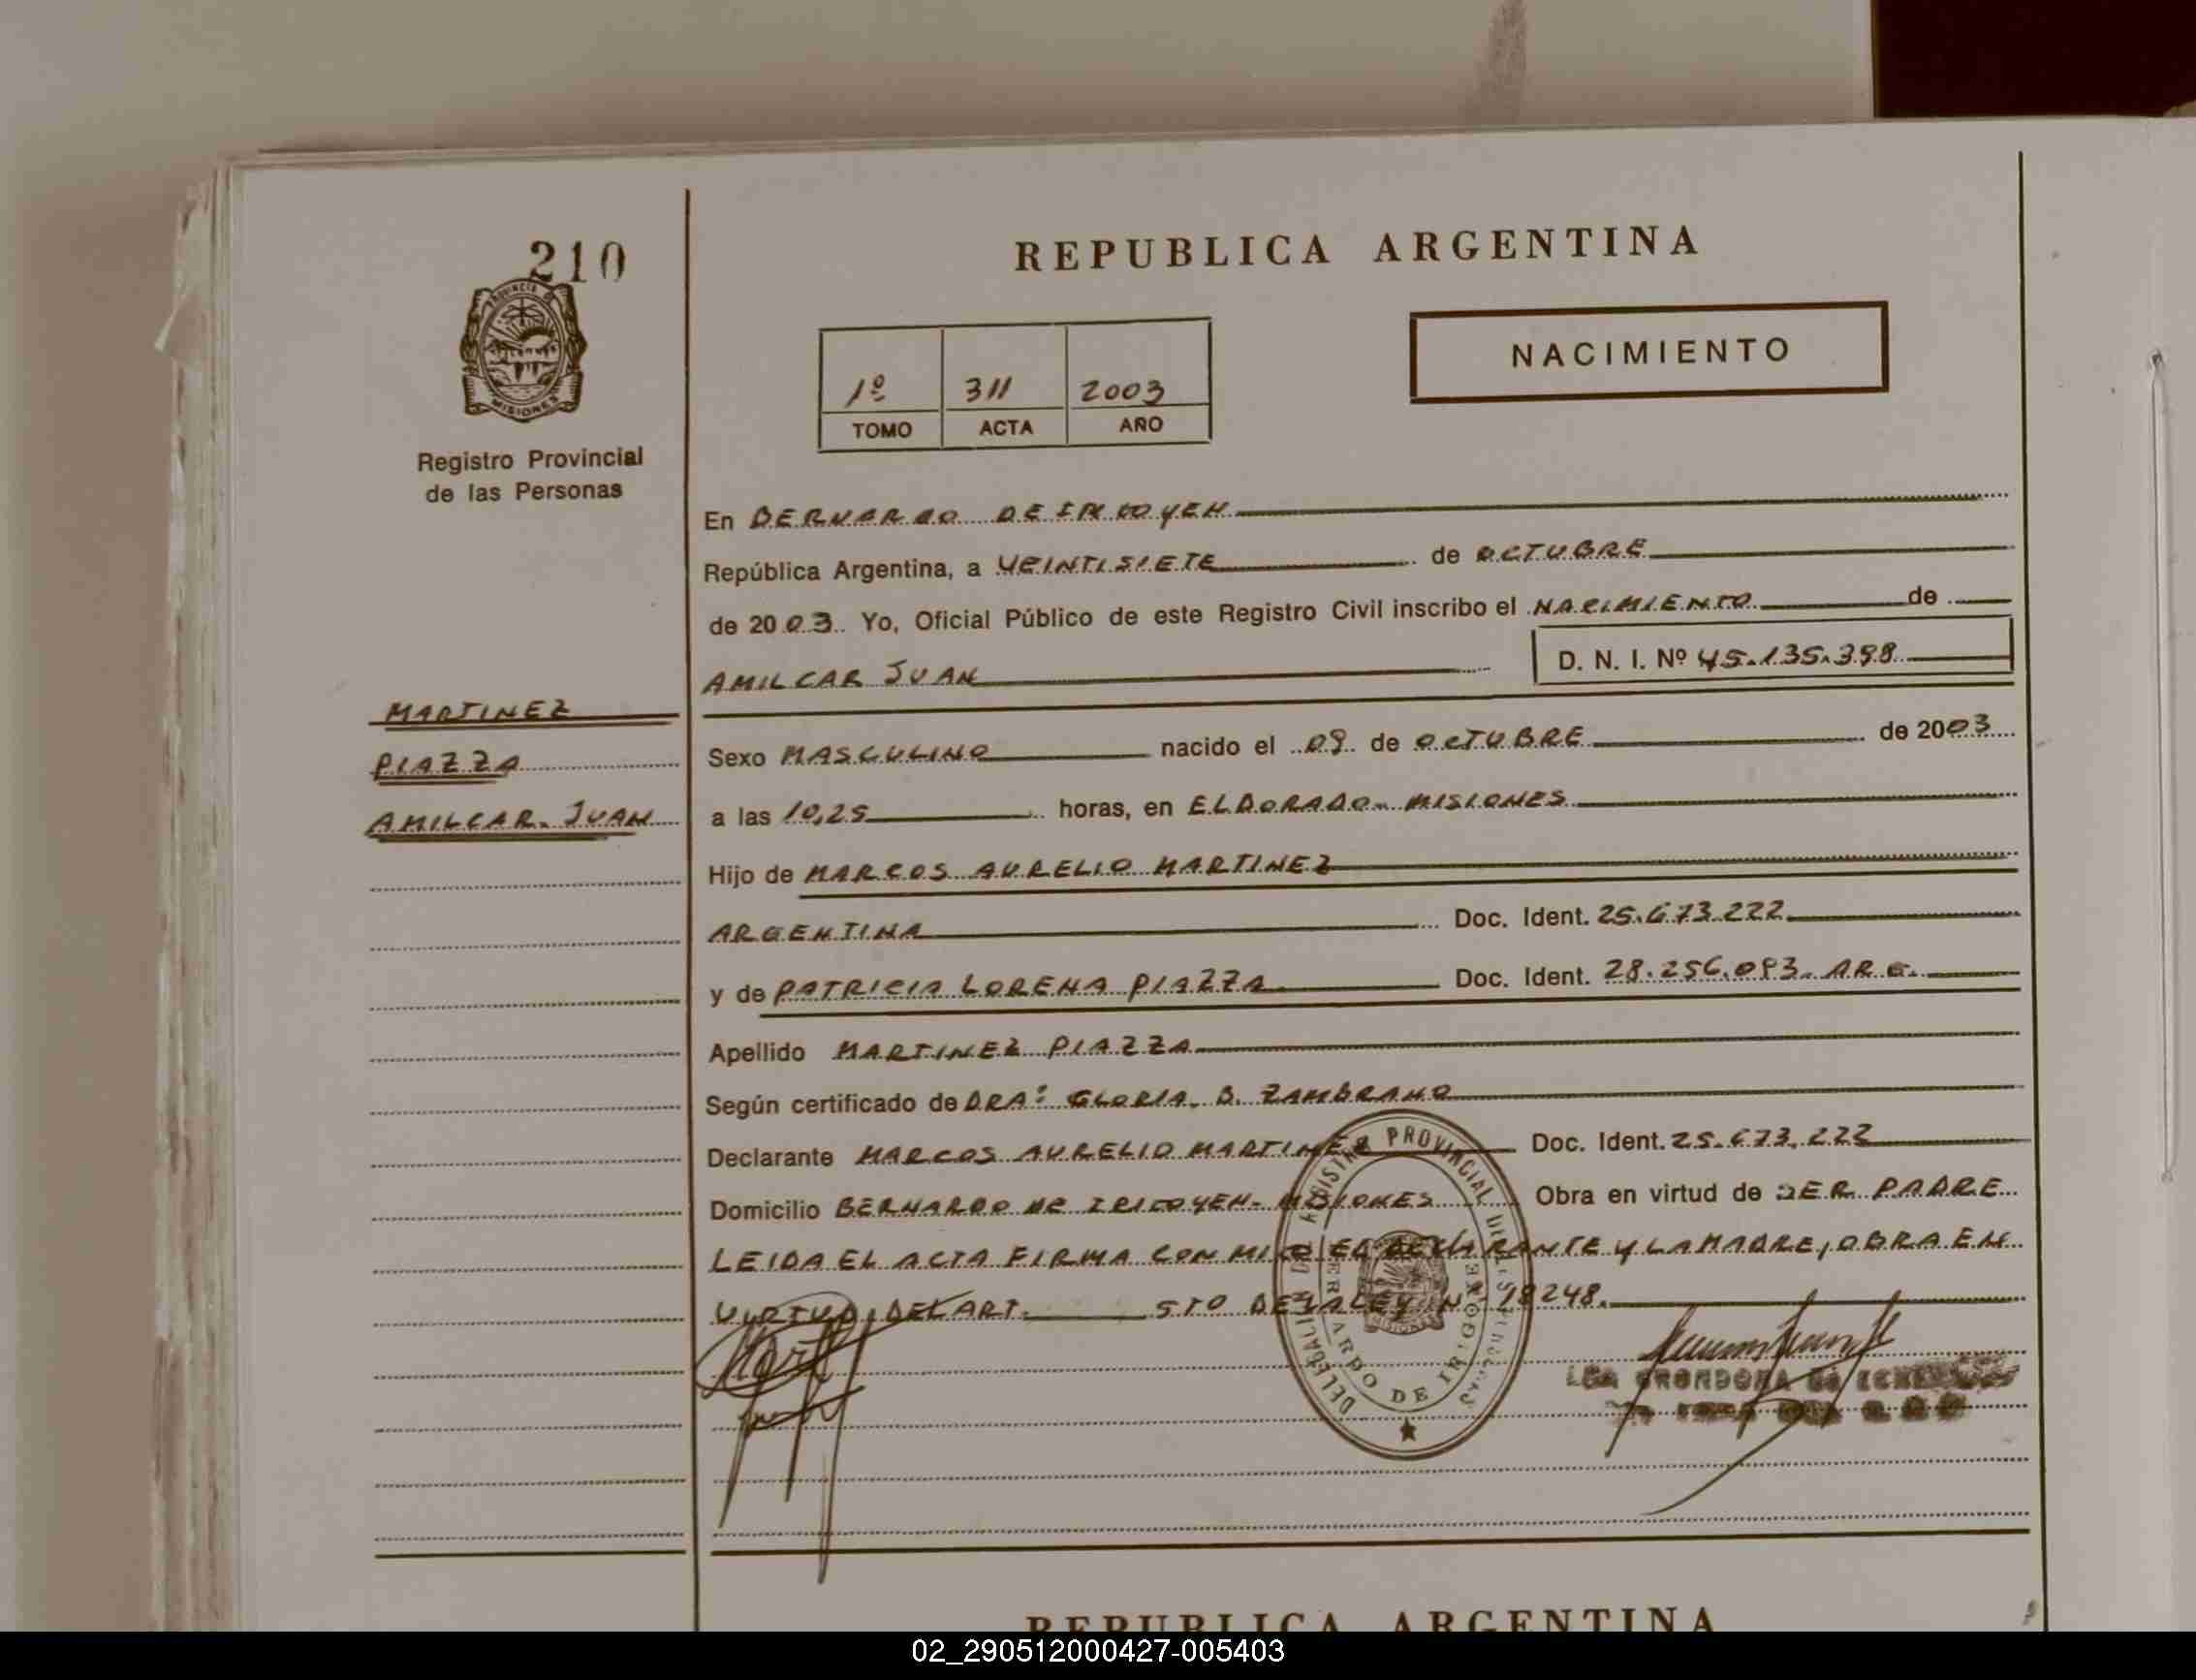 210
PROVINCIA DE
MISIONES
Registro Provincial
de las Personas
REPUBLICA ARGENTINA
1º 311 2003
TOMO ACTA AÑO
NACIMIENTO
En BERNARDO DE IRIGOYEN
República Argentina, a VEINTISIETE de OCTUBRE
de 2003. Yo, Oficial Público de este Registro Civil inscribo el NACIMIENTO de
AMILCAR JUAN D. N. I. Nº 45.135.398
MARTINEZ
PIAZZA
AMILCAR JUAN
Sexo MASCULINO nacido el 09 de OCTUBRE de 2003
a las 10,25 horas, en ELDORADO - MISIONES
Hijo de MARCOS AURELIO MARTINEZ
ARGENTINA Doc. Ident. 25.673.222
y de PATRICIA LORENA PIAZZA Doc. Ident. 28.256.093. ARG.
Apellido MARTINEZ PIAZZA
Según certificado de DRA: GLORIA B. ZAMBRANO
Declarante MARCOS AURELIO MARTINEZ Doc. Ident. 25.673.222
Domicilio BERNARDO DE IRIGOYEN - MISIONES Obra en virtud de SER PADRE
LEIDA EL ACTA FIRMA CONMIGO EL DECLARANTE Y LA MADRE, OBRA EN
VIRTUD DEL ART. 5TO DE LA LEY Nº 18248.
REPUBLICA ARGENTINA
02_290512000427-005403